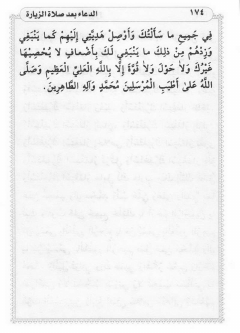 ١٧٤ الدعاء بعد صلاة الزيارة
فِي جَمِيعِ ما سَأَلْتُكَ وَأَوْصِلْ هَدِيَّتِي إِلَيْهِمْ كَما يَنْبَغِي
وَزِدْهُمْ مِنْ ذلِكَ ما يَنْبَغِي لَكَ بِأَضْعافٍ لا يُحْصِيهَا
غَيْرُكَ وَلاٰ حَوْلَ وَلاٰ قُوَّةَ إِلّا بِاللَّهِ الْعَلِيِّ الْعَظِيمِ وَصَلَّى
اللَّهُ عَلىٰ أَطْيَبِ الْمُرْسَلِينَ مُحَمَّدٍ وَآلِهِ الطَّاهِرِينَ.